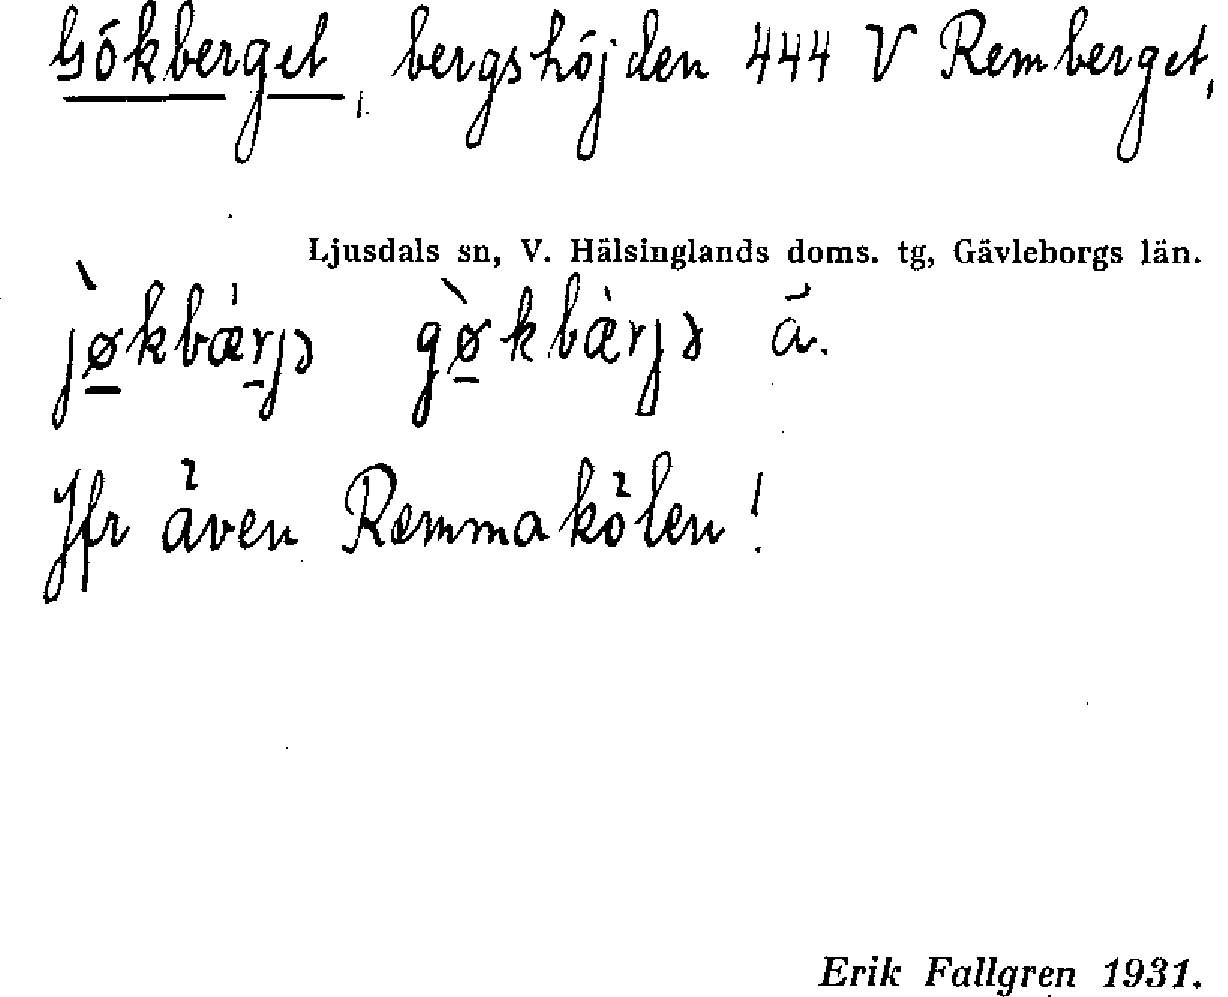 Gökberget, bergshöjden 444 V Remberget,
Ljusdals sn, V. Hälsinglands doms. tg, Gävleborgs län.
jø̀kbæ̀rjə gø̀kbæ̀rjə ä.
Jfr även Remmakölen!
Erik Fallgren 1931.